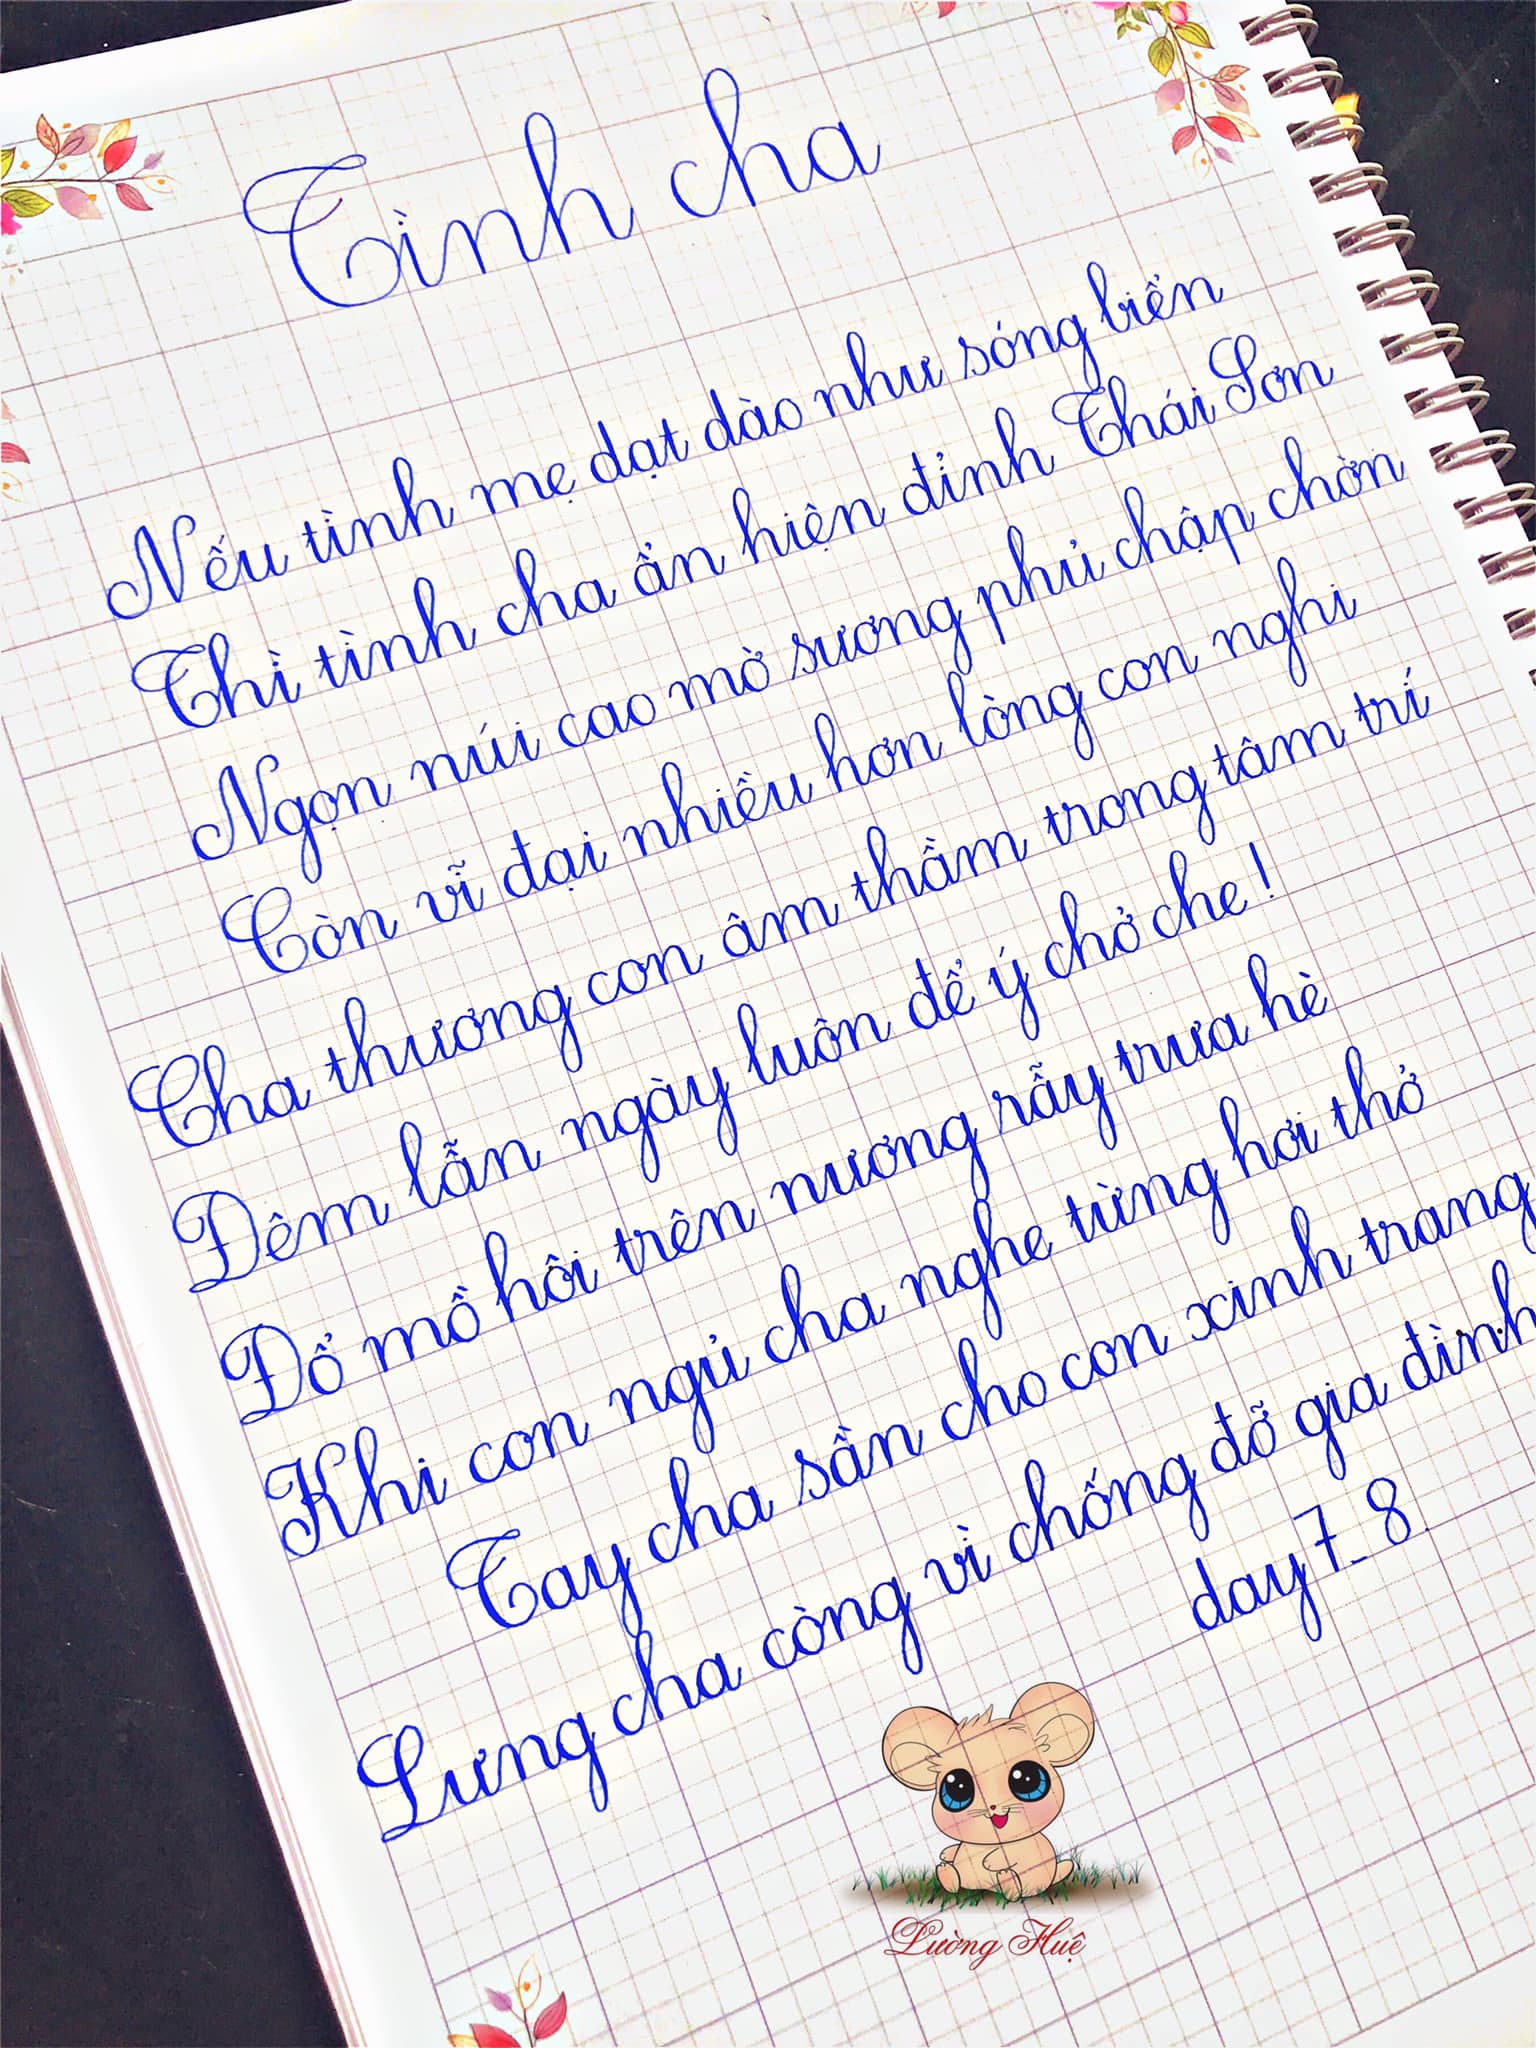 Tình cha
Nếu tình mẹ dạt dào như sóng biển
Thì tình cha ẩn hiện đỉnh Thái Sơn
Ngọn núi cao mờ sương phủ chập chờn
Còn vĩ đại nhiều hơn lòng con nghi
Cha thương con âm thầm trong tâm trí
Đêm lẫn ngày luôn để ý chở che!
Đổ mồ hôi trên nương rẫy trưa hè
Khi con ngủ cha nghe từng hơi thở
Tay cha sần cho con xinh trang
Lưng cha còng vì chống đỡ gia đình
day 7_8
Lường Huệ